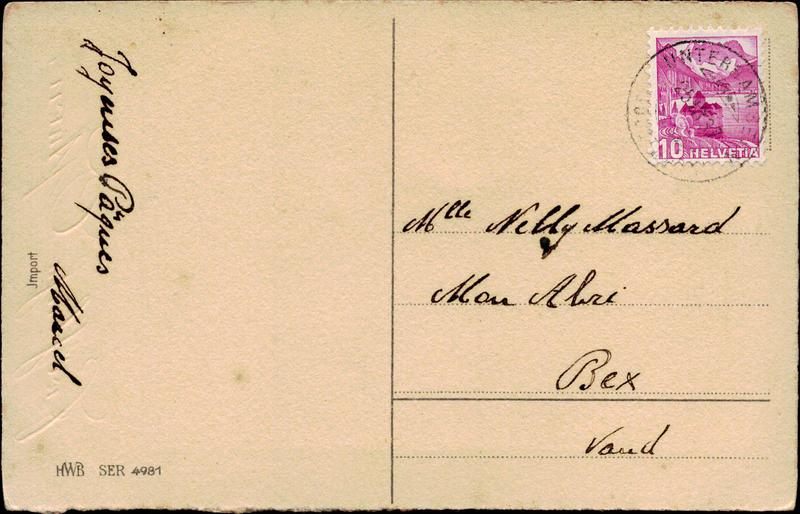 Joyeuses Pâques
Marcel
Jmport
HWB SER 4981
10 HELVETIA
Mlle Nelly Massard
Mon Abri
Bex
Vaud